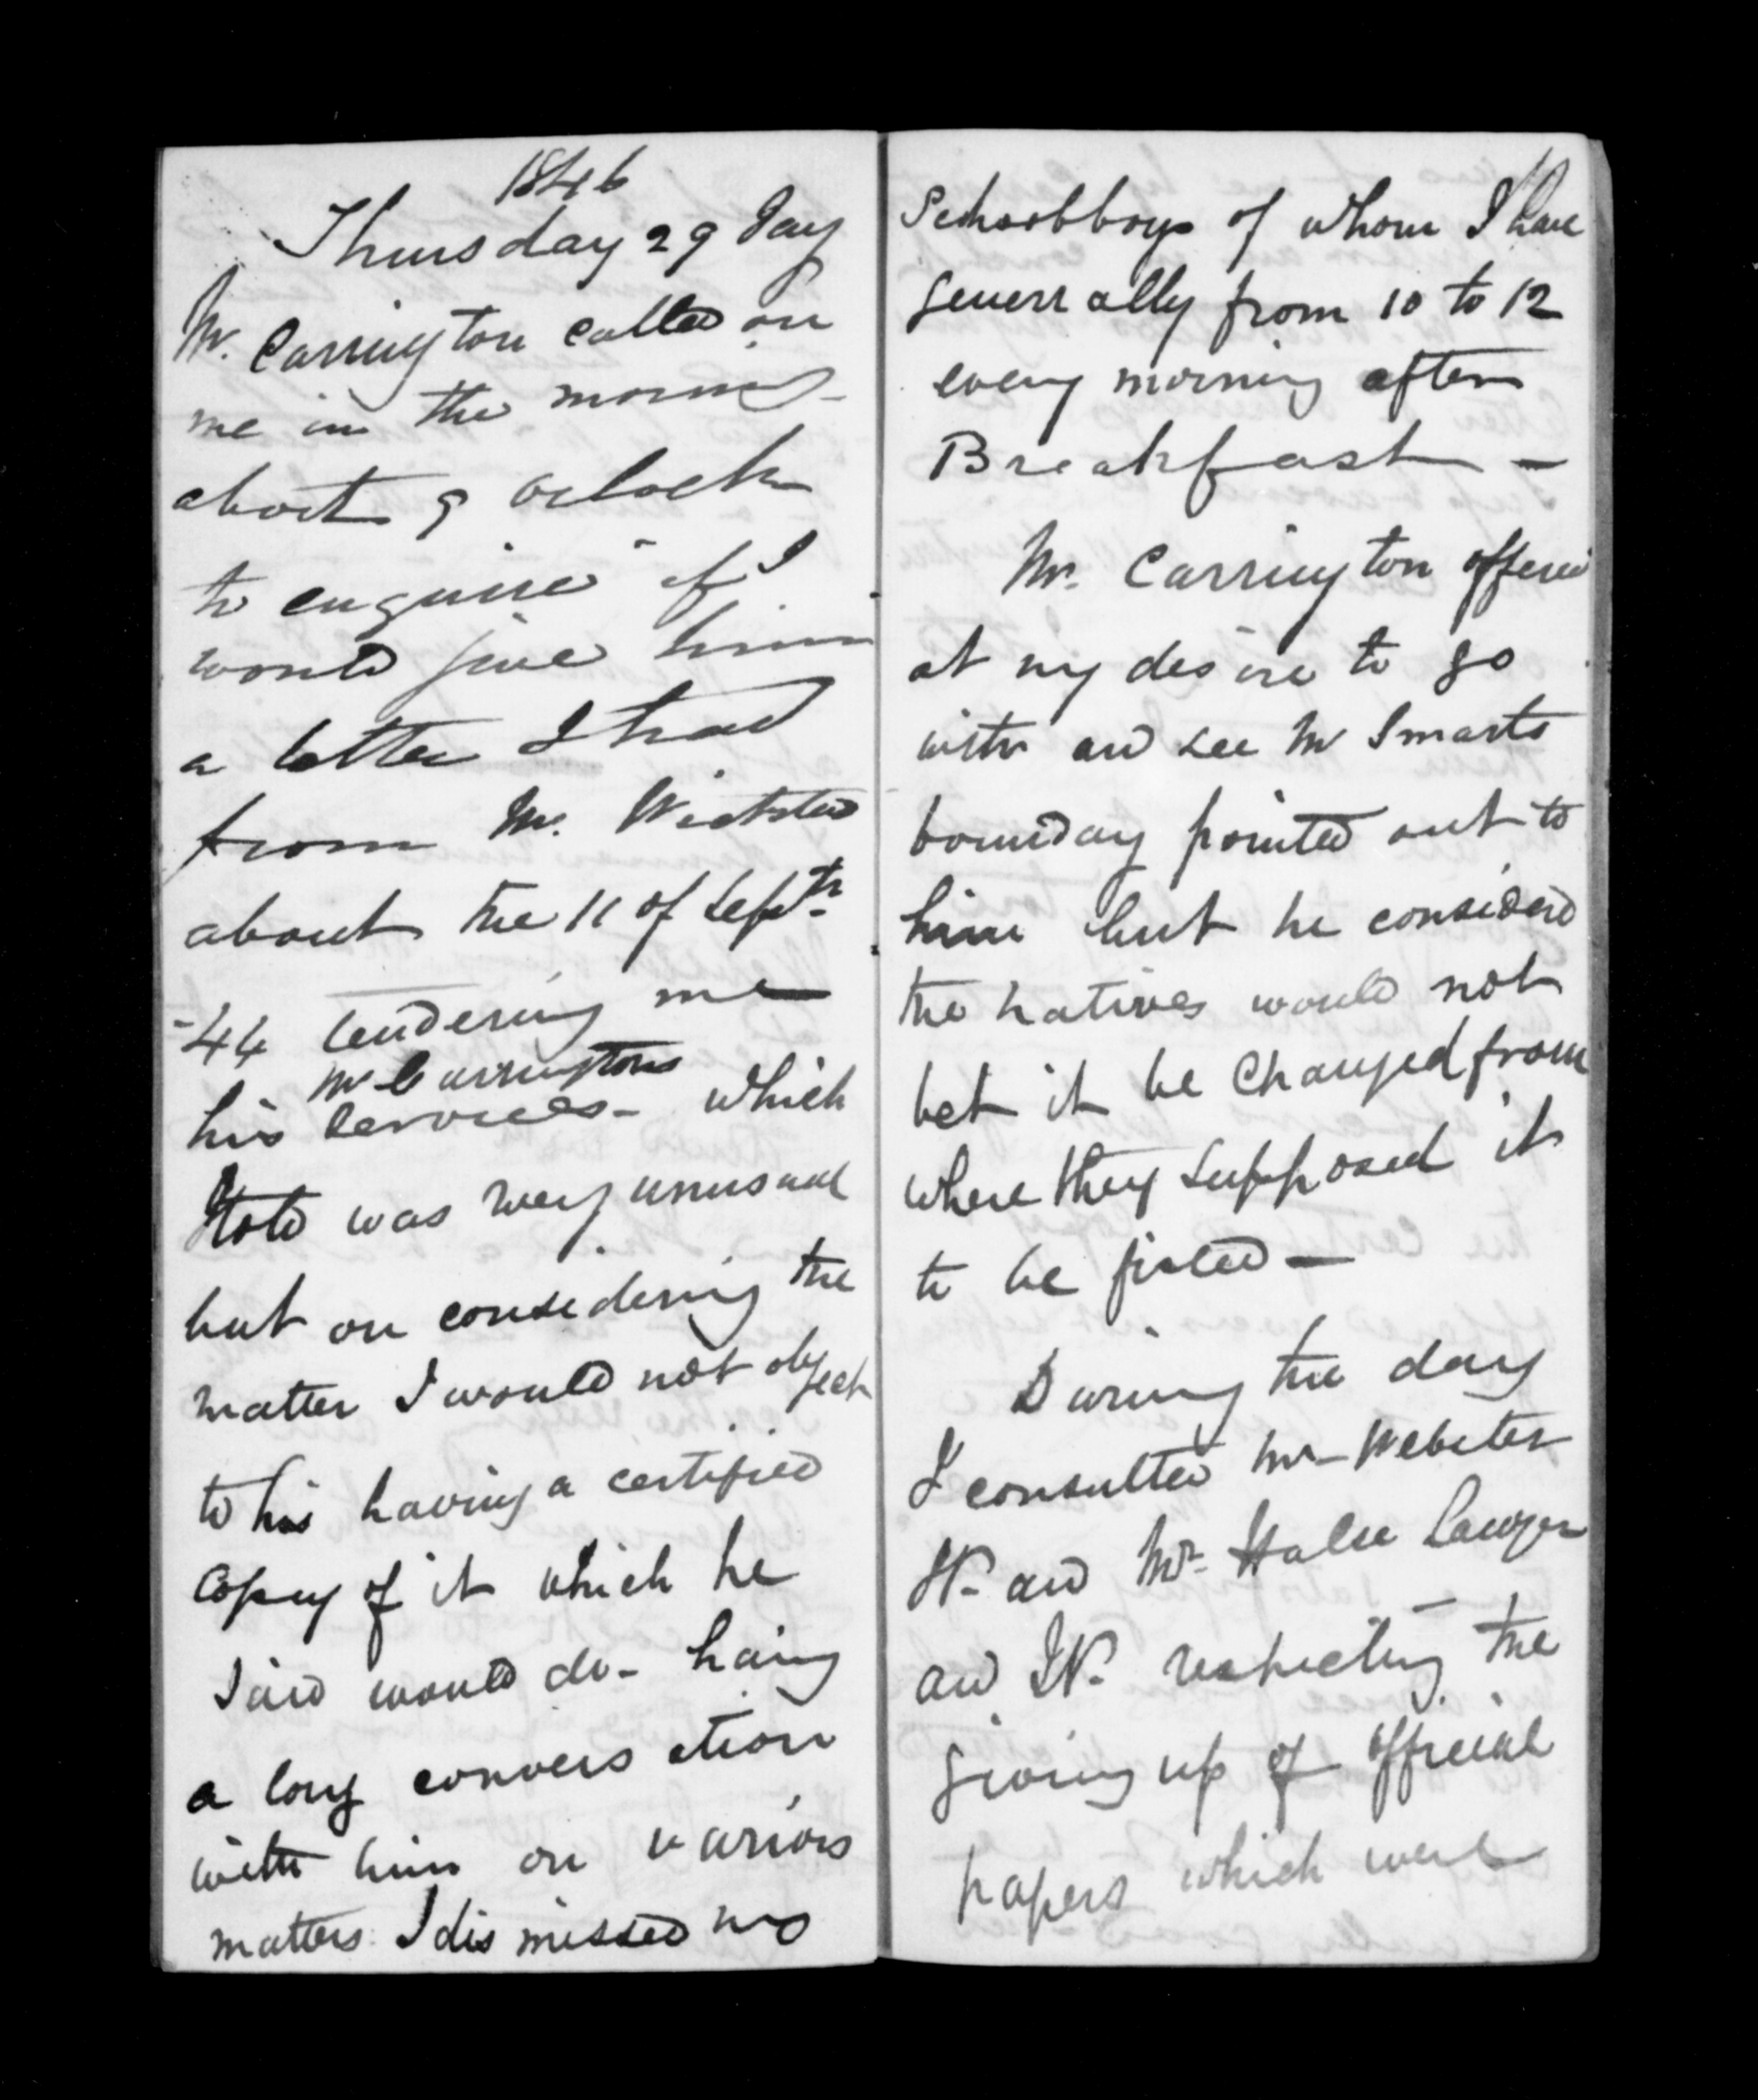 1846
Thursday 29 Jany
Mr. Carrington called on
me in the morning
about 9 oclock
to enquire if I
would give him
a letter I had
from Mr. Wicksteed
about the 11 of Septr.
-44 tendering me
Mr Carringtons
his services - which
I told was very unusual
but on considering the
matter I would not object
to his having a certified
Copy of it which he
said would do - having
a long conversation
with him on various
matters I dismissed my
Schoolboys of whom I have
generally from 10 to 12
every morning after
Breakfast -
Mr. Carrington offered
at my desire to go
with and see Mr Smarts
bounday pointed out to
him but he considered
the natives would not
let it be Changed from
where they supposed it
to be fixed -
During the day
I consulted Mr Webster
JP. and Mr. Halse Lawyer
and JP. respecting the
giving up of official
papers which were